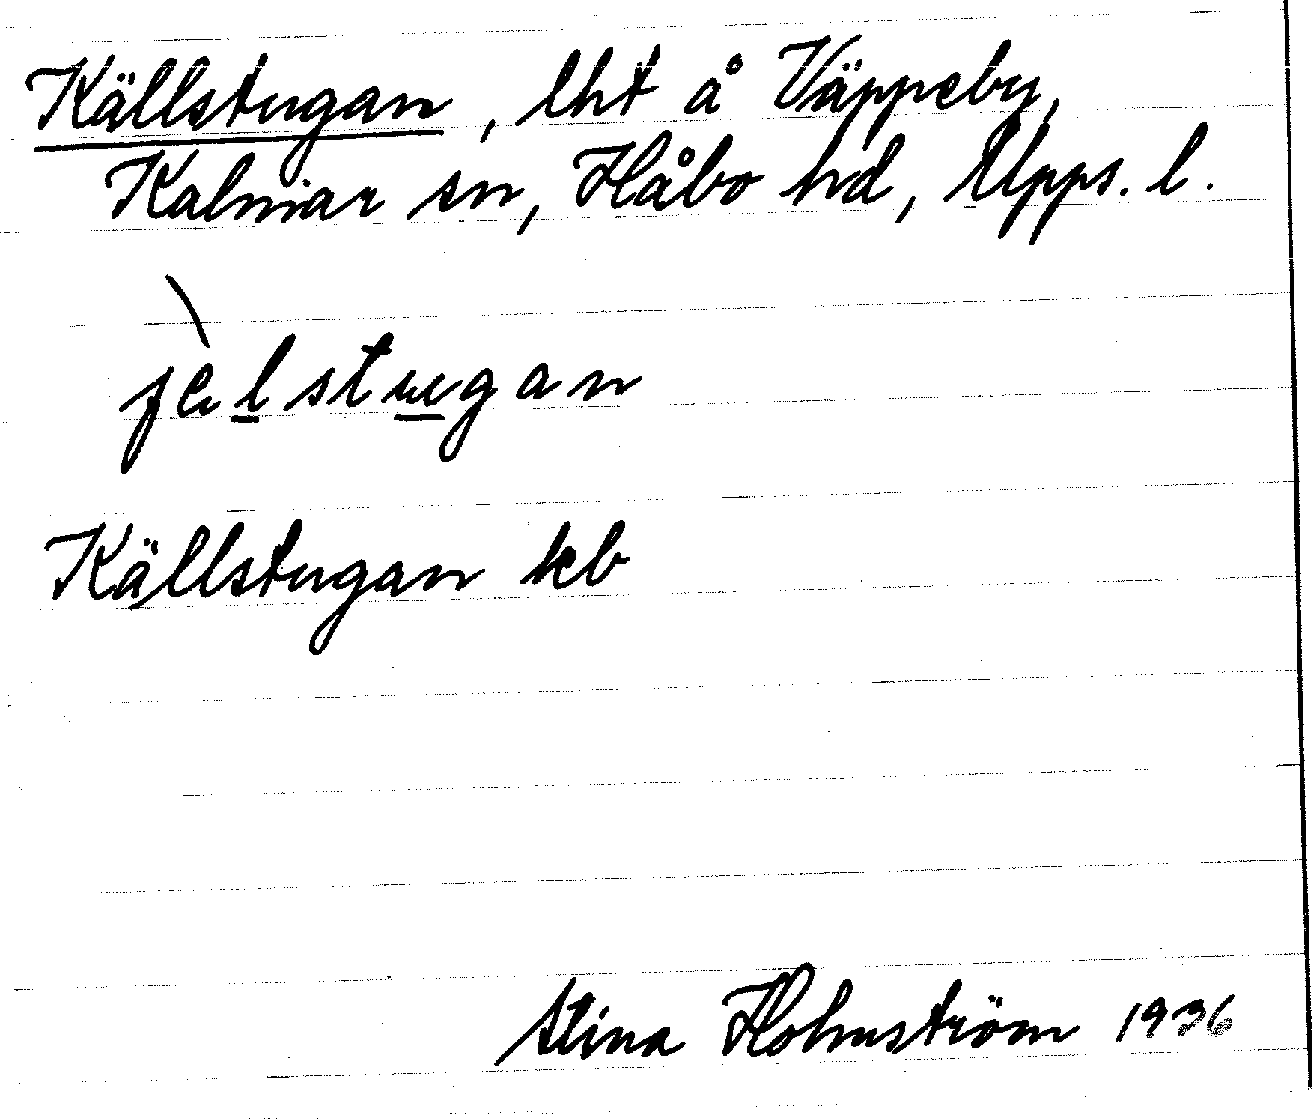 Källstugan, lht å Väppeby,
Kalmar sn, Håbo hd, Upps. l.
Källstugan kb
Stina Holmström 1936